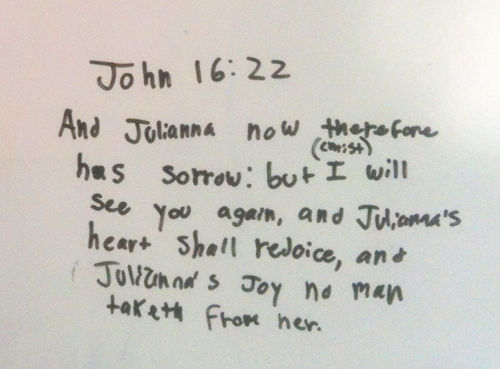 John 16:22
And Julianna now therefore
(christ)
has sorrow: but I will
see you again, and Julianna's
heart shall rejoice, and
Julianna's Joy no man
taketh from her.